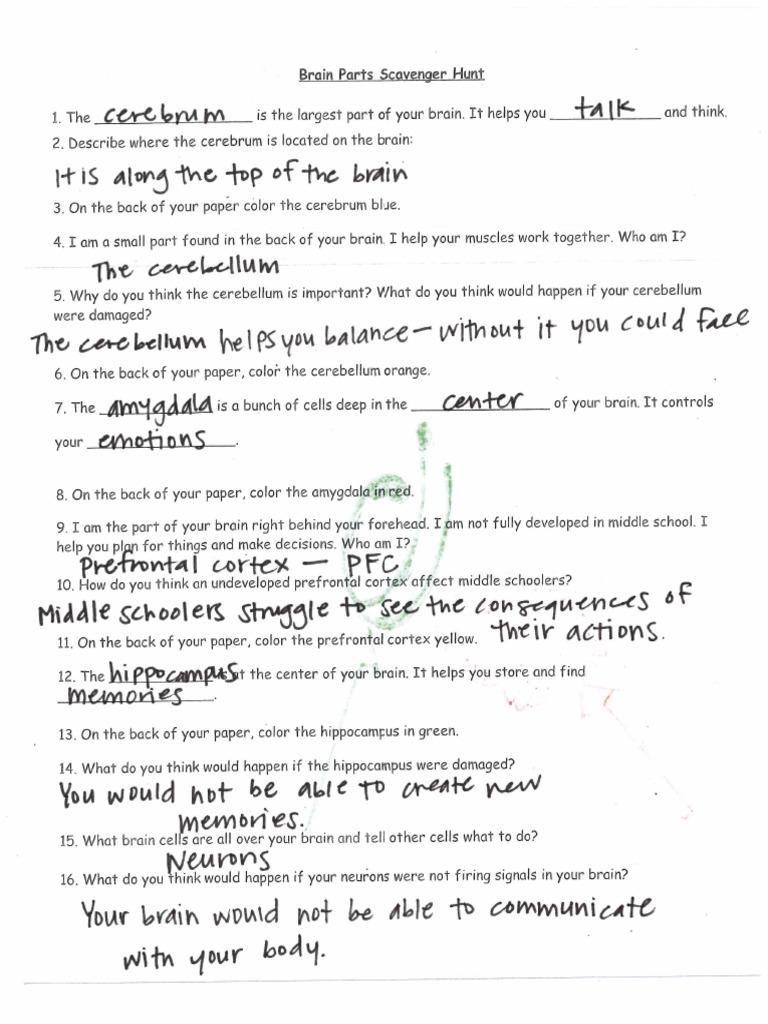 Brain Parts Scavenger Hunt
1. The cerebrum is the largest part of your brain. It helps you talk and think.
2. Describe where the cerebrum is located on the brain:
It is along the top of the brain
3. On the back of your paper color the cerebrum blue.
4. I am a small part found in the back of your brain. I help your muscles work together. Who am I?
The cerebellum
5. Why do you think the cerebellum is important? What do you think would happen if your cerebellum
were damaged?
The cerebellum helps you balance – without it you could fall
6. On the back of your paper, color the cerebellum orange.
7. The amygdala is a bunch of cells deep in the center of your brain. It controls
your emotions.
8. On the back of your paper, color the amygdala in red.
9. I am the part of your brain right behind your forehead. I am not fully developed in middle school. I
help you plan for things and make decisions. Who am I?
Prefrontal cortex – PFC
10. How do you think an undeveloped prefrontal cortex affect middle schoolers?
Middle schoolers struggle to see the consequences of
their actions.
11. On the back of your paper, color the prefrontal cortex yellow.
12. The hippocampus at the center of your brain. It helps you store and find
memories.
13. On the back of your paper, color the hippocampus in green.
14. What do you think would happen if the hippocampus were damaged?
You would not be able to create new
memories.
15. What brain cells are all over your brain and tell other cells what to do?
Neurons
16. What do you think would happen if your neurons were not firing signals in your brain?
Your brain would not be able to communicate
with your body.